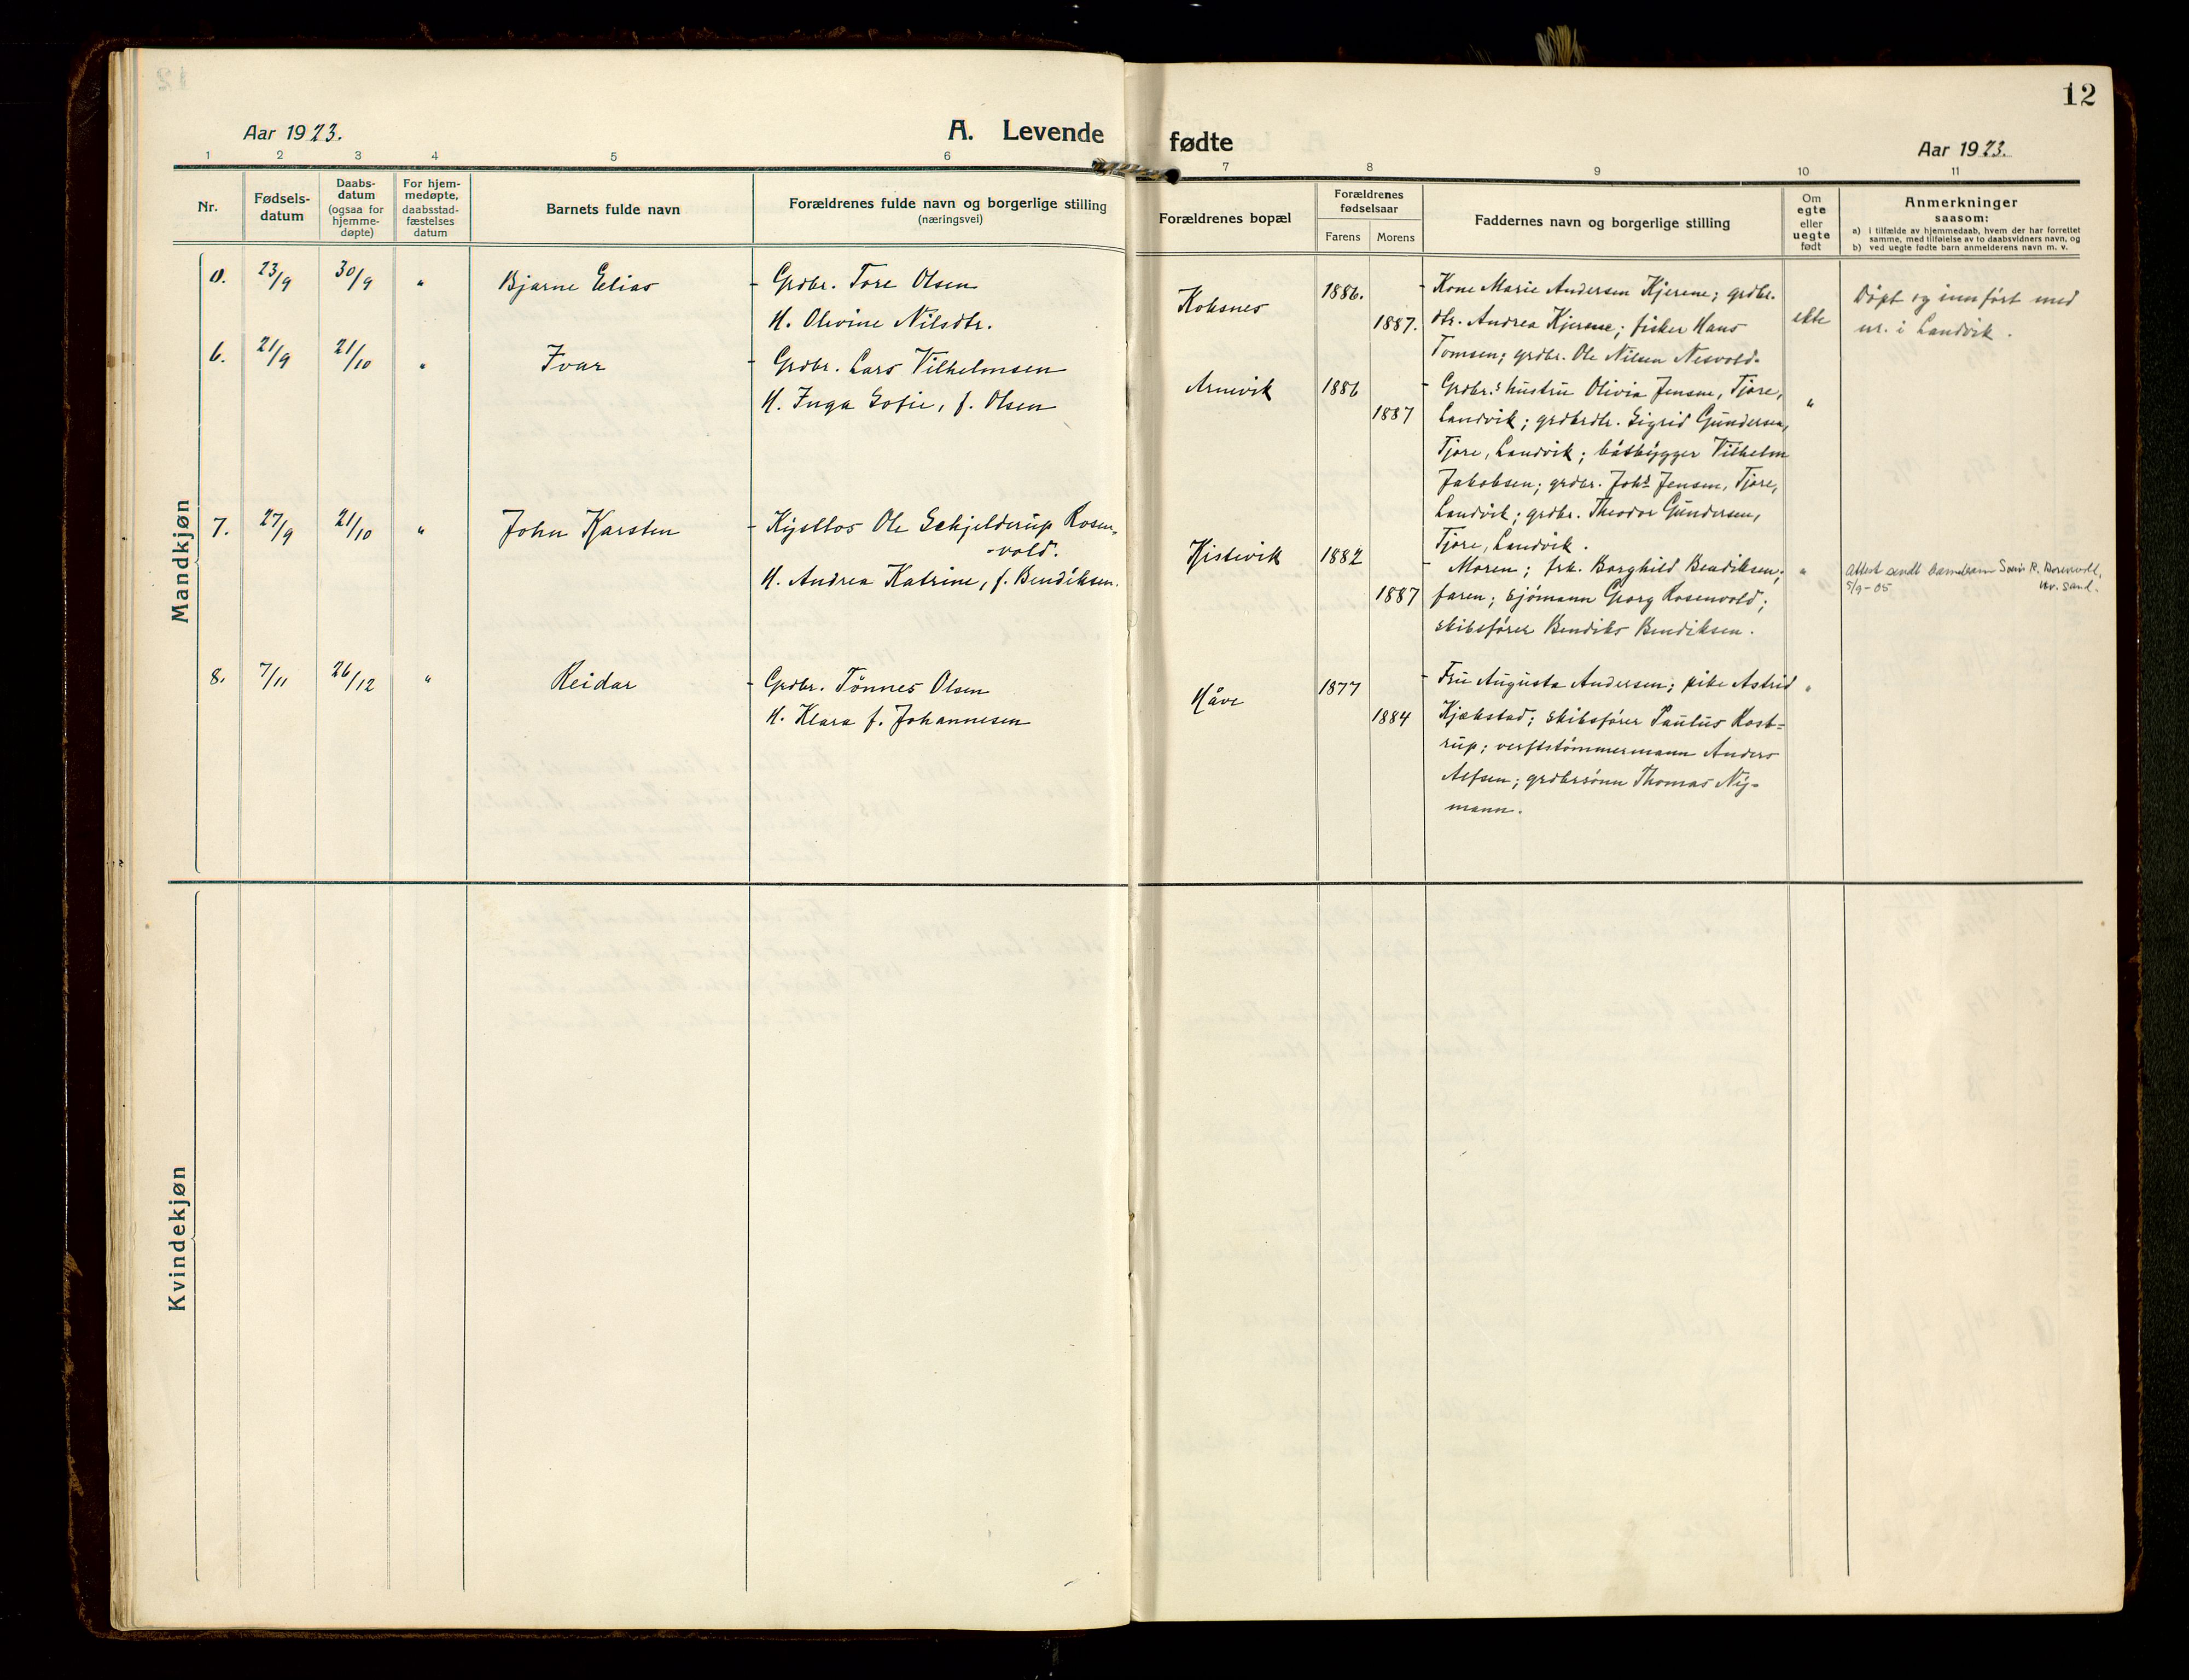 12
Aar 1923.
A. Levende
fødte
Aar 1923.
1 2 3 4 5 6 7 8 9 10 11
Nr.
Fødsels-
datum
Daabs-
datum
(ogsaa for
hjemme-
døpte)
For hjem-
medøpte,
daabsstad-
fæstelses
datum
Barnets fulde navn
Forældrenes fulde navn og borgerlige stilling
(næringsvei)
Forældrenes bopæl
Forældrenes
fødselsaar
Farens Morens
Faddernes navn og borgerlige stilling
Om
egte
eller
uegte
født
Anmerkninger
saasom:
a) i tilfælde av hjemmedaab, hvem der har forrettet
samme, med tilføielse av to daabsvidners navn, og
b) ved uegte fødte barn anmelderens navn m. v.
Mandkjøn
0. 23/9 30/9 " Bjarne Elias
- Grdbr. Tore Olsen
H. Olivine Nilsdtr.
Koksnes
1886.
1887.
- Kone Marie Andersen Kjerene; grdbr.
dtr. Andrea Kjerene; fisker Hans
Tomsen; grdbr. Ole Nilsen Nesvold.
ekte
Døpt og innført med
nr. i Landvik.
6. 21/9 21/10 " Ivar
- Grdbr. Lars Vilhelmsen
H. Inga Sofie, f. Olsen
Arnevik
1886
1887
- Grdbr.s hustru Olivia Jensen, Tjore,
Landvik; grdbrdtr. Sigrid Gundersen,
Tjore, Landvik; båtbygger Vilhelm
Jakobsen; grdbr. Johs Jensen, Tjore,
Landvik; grdbr. Theodor Gundersen,
Tjore, Landvik.
"
7. 27/9 21/10 " John Karsten
- Kystlos Ole Schjelderup Rosen-
-vold.
H. Andrea Katrine, f. Bendiksen.
Kistevik
1882
1887
- Moren; frk. Borghild Bendiksen;
faren; sjømann Georg Rosenvold;
skibsfører Bendiks Bendiksen.
"
Attest sendt R. Rosenvold,
5/9-05
8. 7/11 26/12 " Reidar
- Grdbr. Tønnes Olsen
H. Klara f. Johannesen
Håve
1877
1884
- Fru Augusta Andersen; pike Astrid
Kjekstad; skibsfører Paulus Rost-
rup; verftstømmermann Anders
Alfsen; grdbrsønn Thomas Ny-
mann.
"
Kvindekjøn